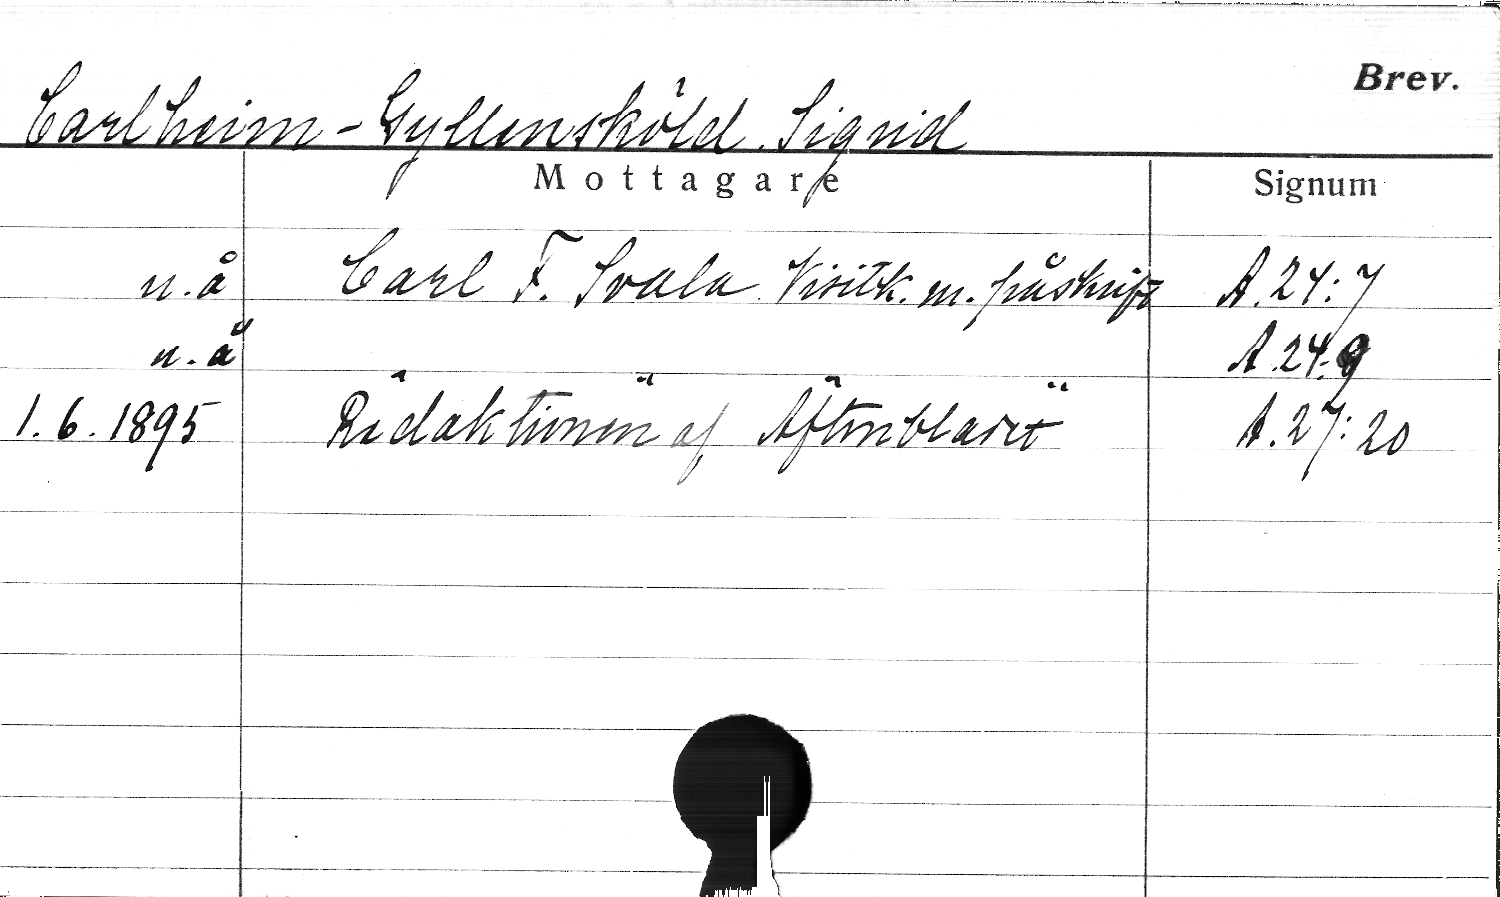 Brev.
Carlheim-Gyllensköld. Sigrid
Mottagare Signum
u.å Carl F. Svala. Visitk. m. påskrift A.24:7
u.å " " " " A.24:9
1.6.1895 Redaktionen af Aftonbladet A.27:20